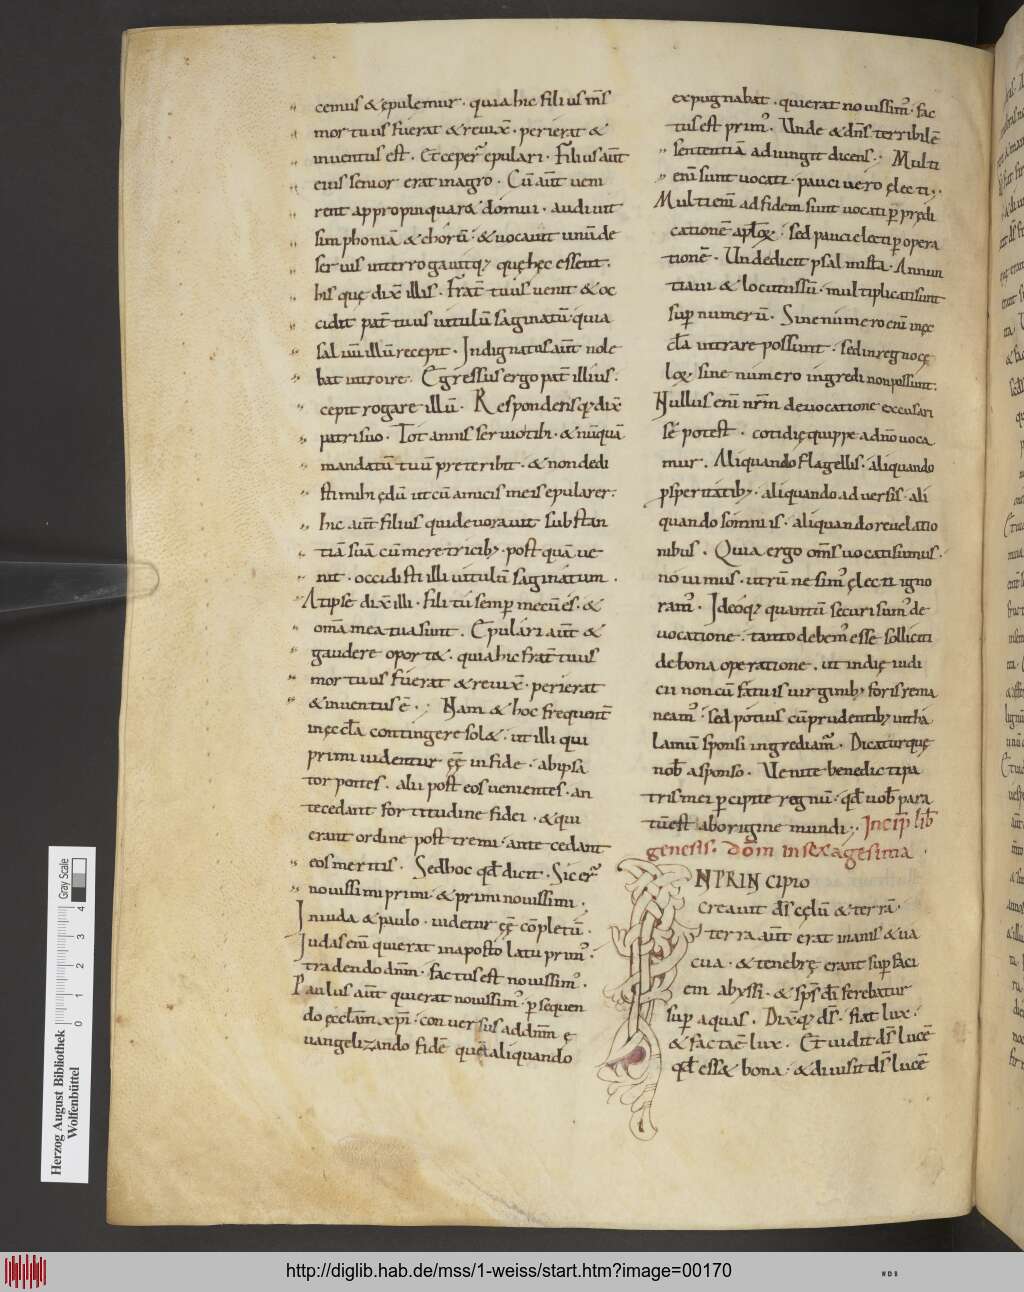 cemus & epulemur · quia hic filius m̅s
mortuus fuerat & reuix̅ · perierat &
inuentus est · Et ceper̅ epulari · Filius aut̅
eius senior erat in agro · Cu̅ aut̅ ueni
rent appropinquar& domui · audiuit
simphonia̅ & choru̅ · & uocauit unu̅ de
seruis interrogauitq; quę hęc essent ·
his quę dix̅ illis · Frat̅ tuus uenit & oc
cidit pat̅ tuus uitulu̅ saginatu̅ · quia
saluu̅ illu̅ recepit · Indignatus aut̅ nole
bat introire · Egressus ergo pat̅ illius ·
cepit rogare illu̅ · Respondensq; dix̅
patri suo · Tot annis seruio tibi · & nu̅qua̅
mandatu̅ tuu̅ preteribit · & non dedi
sti mihi ędu̅ ut cu̅ amicis meis epularer ·
hic aut̅ filius qui deuorauit substan
tia̅ sua̅ cu̅ meretricib; · postqua̅ ue
nit · occidisti illi uitulu̅ saginatum ·
At ipse dix̅ illi · Fili tu semp̅ mecu̅ es · &
om̅a mea tua sunt · Epulari aut̅ &
gaudere oport& · quia hic frat̅ tuus
mortuus fuerat & reuix̅ · perierat
& inuentus e̅ · Nam & hoc frequent̅
in ęccl̅a contingere sol& · ut illi qui
primi uidentur ęę̅ in fide · ab ipsa
torpentes · alii post eos uenientes · an
tecedant fortitudine fidei · & qui
erant ordine postremi · antecedant
eos meritis · Sed hoc qd̅ dicit · Sic er̅
nouissimi primi · & primi nouissimi ·
In iuda & paulo · uidetur ęę̅ co̅pletu̅ ·
Iudas eni̅ qui erat in apostolatu prim' ·
tradendo dn̅m · factus est nouissim' ·
Paulus aut̅ qui erat nouissim' · persequen
do ęccl̅am xp̅i · conuersus ad dn̅m ę
uangelizando fide̅ que̅ aliquando
expugnabat · qui erat nouissim' · fac
tus est prim' · Unde & dn̅s terribile̅
sententia̅ adiungit dicens · Multi
eni̅ sunt uocati · pauci uero ęlecti ·
Multi eni̅ ad fidem sunt uocati p̅ prędi
catione̅ apl̅oꝝ · sed pauci electi p̅ opera
tione̅ · Unde dicit psalmista · Annun
tiaui & locutus su̅ · multiplicati sunt
sup̅ numeru̅ · Sine numero eni̅ in ęc
cl̅a intrare possunt · sed in regno cę
loꝝ · sine numero ingredi non possunt ·
Nullus eni̅ nr̅m de uocatione excusari
se̅ potest · cotidię quippe a dn̅o uoca
mur · Aliquando flagellis · aliquando
ꝓsperitatib; · aliquando aduersis · ali
quando somniis · aliquando reuelatio
nibus · Quia ergo om̅s uocati sumus ·
nouimus · utru̅ ne sim' ęlecti igno
ram' · Ideoq; quantu̅ securi sum' de
uocatione · tanto debem' esse solliciti
de bona operatione · ut in dię iudi
cii non cu̅ fatuis uirginib; foris rema
neam' · sed potius cu̅ prudentib; in tha
lamu̅ sponsi ingrediam̅ · Dicaturquę
nob̅ a sponso · Uenite benedicti pa
tris mei p̅cipite regnu̅ · qd̅ uob̅ para
tu̅ est ab origine mundi · Incip̅ lib̅
genesis · dom̅ in sexagesima
IN PRINcipio
creauit ds̅ cęlu̅ & terra̅ ·
terra aut̅ erat inanis & ua
cua · & tenebrę erant sup̅ faci
em abyssi · & sps̅ di̅ ferebatur
sup̅ aquas · Dix̅q; ds̅ · fiat lux ·
& facta e̅ lux · Et uidit ds̅ luce̅
qd̅ ess& bona · & diuisit ds̅ luce̅
Herzog August Bibliothek
Wolfenbüttel
0 1 2 3 4
Gray Scale
http://diglib.hab.de/mss/1-weiss/start.htm?image=00170